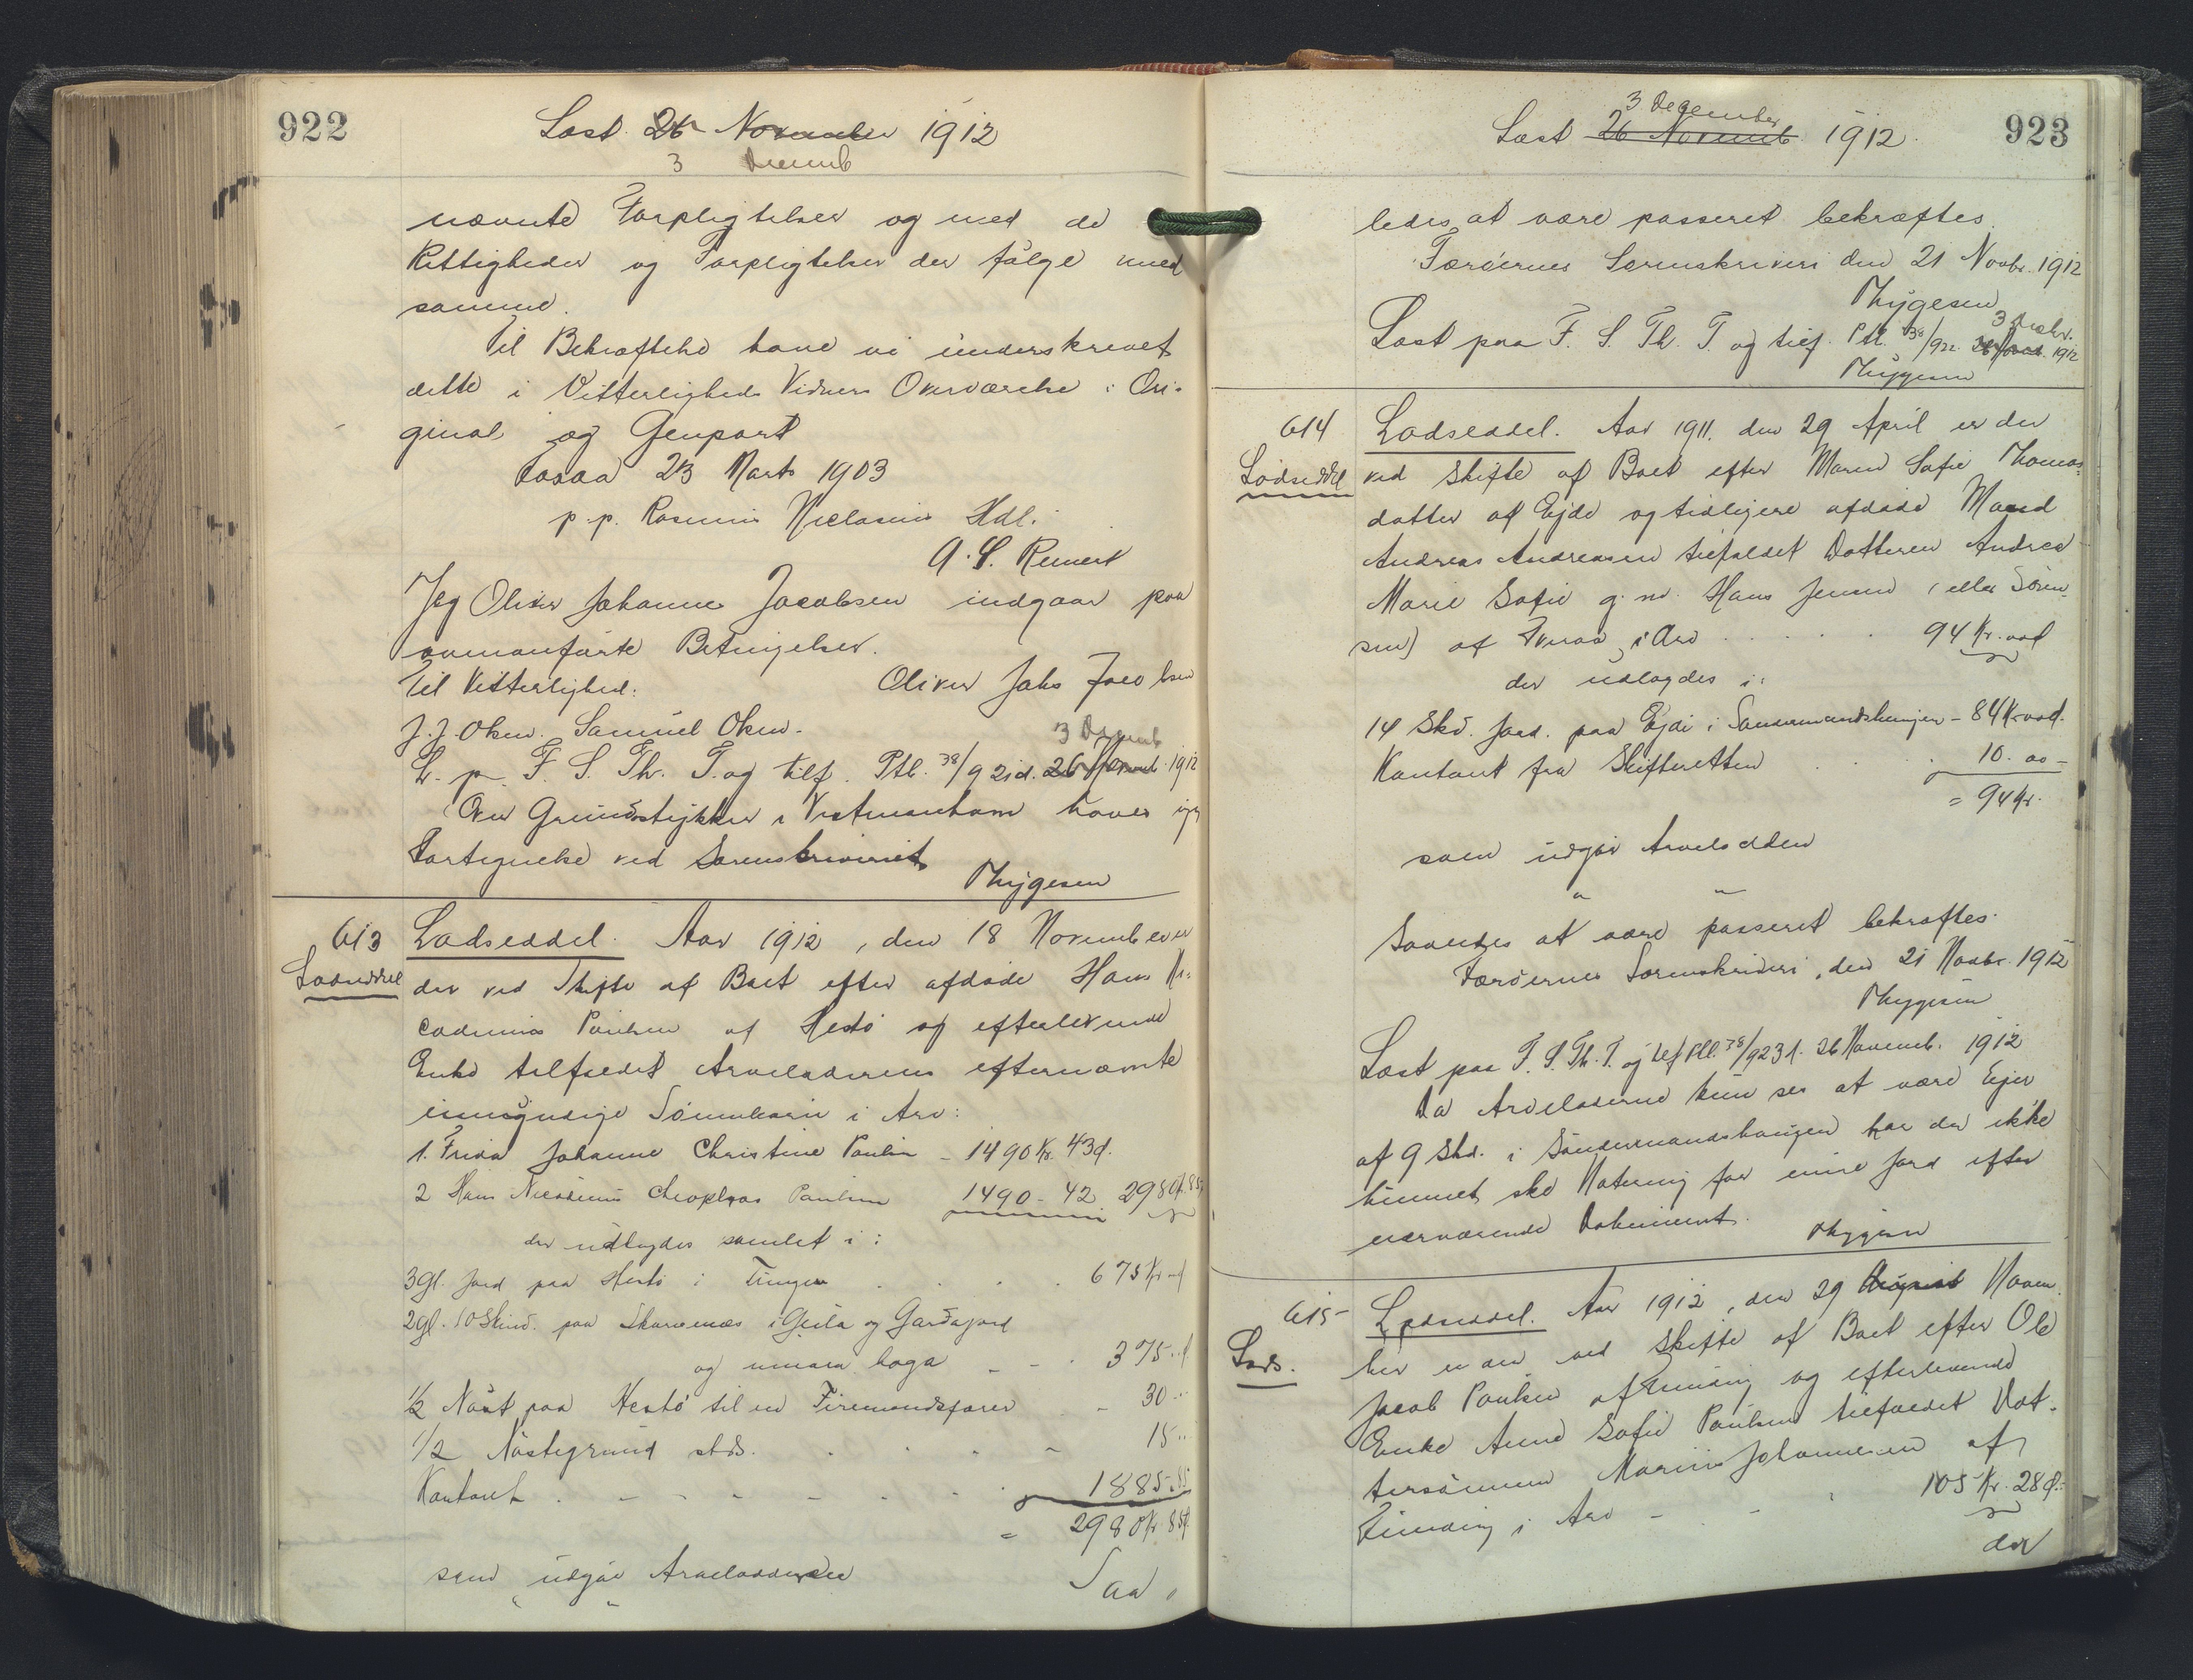 922
Læst 26 November 1912
3 Decemb
nævnte Forpligtelser og med de
Rettigheder og Forpligtelser der følge med
samme.
Til Bekræftelse have vi underskrevet
dette i Vitterligheds Vidners Overværelse i Ori-
ginal og Genpart
Tosaa 23 Marts 1903
p.p. Rasmus Niclasens Hdl.
Jeg Oliver Johannes Jacobsen indgaar paa
ovenanførte Betingelser.
Til Vitterlighed: Oliver Johs Jacobsen
J. J. Olsen. Samuel Olsen.
3 Decemb
L. p. F. S. Th. T. og tilf. Ptl. 38/921 d. 26 Novemb. 1912
Over Grundstykker i Vestmanhavn haves ingen
Fortegnelse ved Sorenskriveriet
Thygesen
613 Lodseddel. Aar 1912, den 18 November er
Lodseddel der ved Skifte af Boet efter afdøde Hans Ni-
codemus Poulsen af Hestø og efterlevende
Enke tilfaldet Arveladerens efternævnte
umyndige Sønnebørn i Arv:
1. Frida Johanne Christine Poulsen - 1490 Kr. 43 Ø.
2 Hans Nicodemus Cleophas Poulsen 1490 - 42 2980 Kr. 85
der udlagdes samlet i:
3 gl. Jord paa Hestø i Tungen . . . . 675 Kr. ad
2 gl. 10 Skind. paa Skarvenæs i Geila og Gardagjord
og innara haga - - . 375 -
1/2 Nøst paa Hestø til en Firemandsfarer - 30 -
1/2 Nøstegrund stds. . . . . 15 -
Kontant . - - - - - . 1885. 85
= 2980 Kr. 85 Ø.
som udgør Arvelodderne
Saa
923
3 December
Læst 26 Novemb 1912
ledes at være passeret bekræftes.
Færøernes Sorenskriveri den 21 Novbr. 1912
Thygesen
3 Decbr.
Læst paa F. S. Th. T og tilf. Ptl. 38/922 26 Novb. 1912
Thygesen
614 Lodseddel. Aar 1911. den 29 April er der
Lodseddel ved Skifte af Boet efter Maren Sofie Thomas-
datter af Ejde og tidligere afdøde Mand
Andreas Andreasen tilfaldet Datteren Andrea
Marie Sofie g. m. Hans Jensen (eller Søren-
sen) af i Arv . . . . . 94 Kr. ad
der udlagdes i:
14 Skd. Jord. paa Ejde i Søndermandshaugen - 84 Kr. ad.
Kontant fra Skifteretten . . . 10. 00 -
= 94 Kr.
som udgør Arvelodden
Saaledes at være passeret bekræftes.
Færøernes Sorenskriveri, den 21 Novbr. 1912
Thygesen
Læst paa F. S. Th. T. og tilf. Ptl. 38/923 d. 26 Novemb. 1912
Da Arveladerne kun ses at være Ejer
af 9 Skd. i Søndermandshaugen har der ikke
kunnet ske Notering for mere Jord efter
nærværende Dokument.
Thygesen
615 Lodseddel. Aar 1912, den 29 August Novem
Lods. ber er der ved Skifte af Boet efter Ole
Jacob Poulsen af Funding og efterlevende
Enke Anne Sofie Poulsen tilfaldet Dat-
tersønnen Marius Johannesen af
Funding i Arv - . - . 105 Kr. 28 Ø.
der